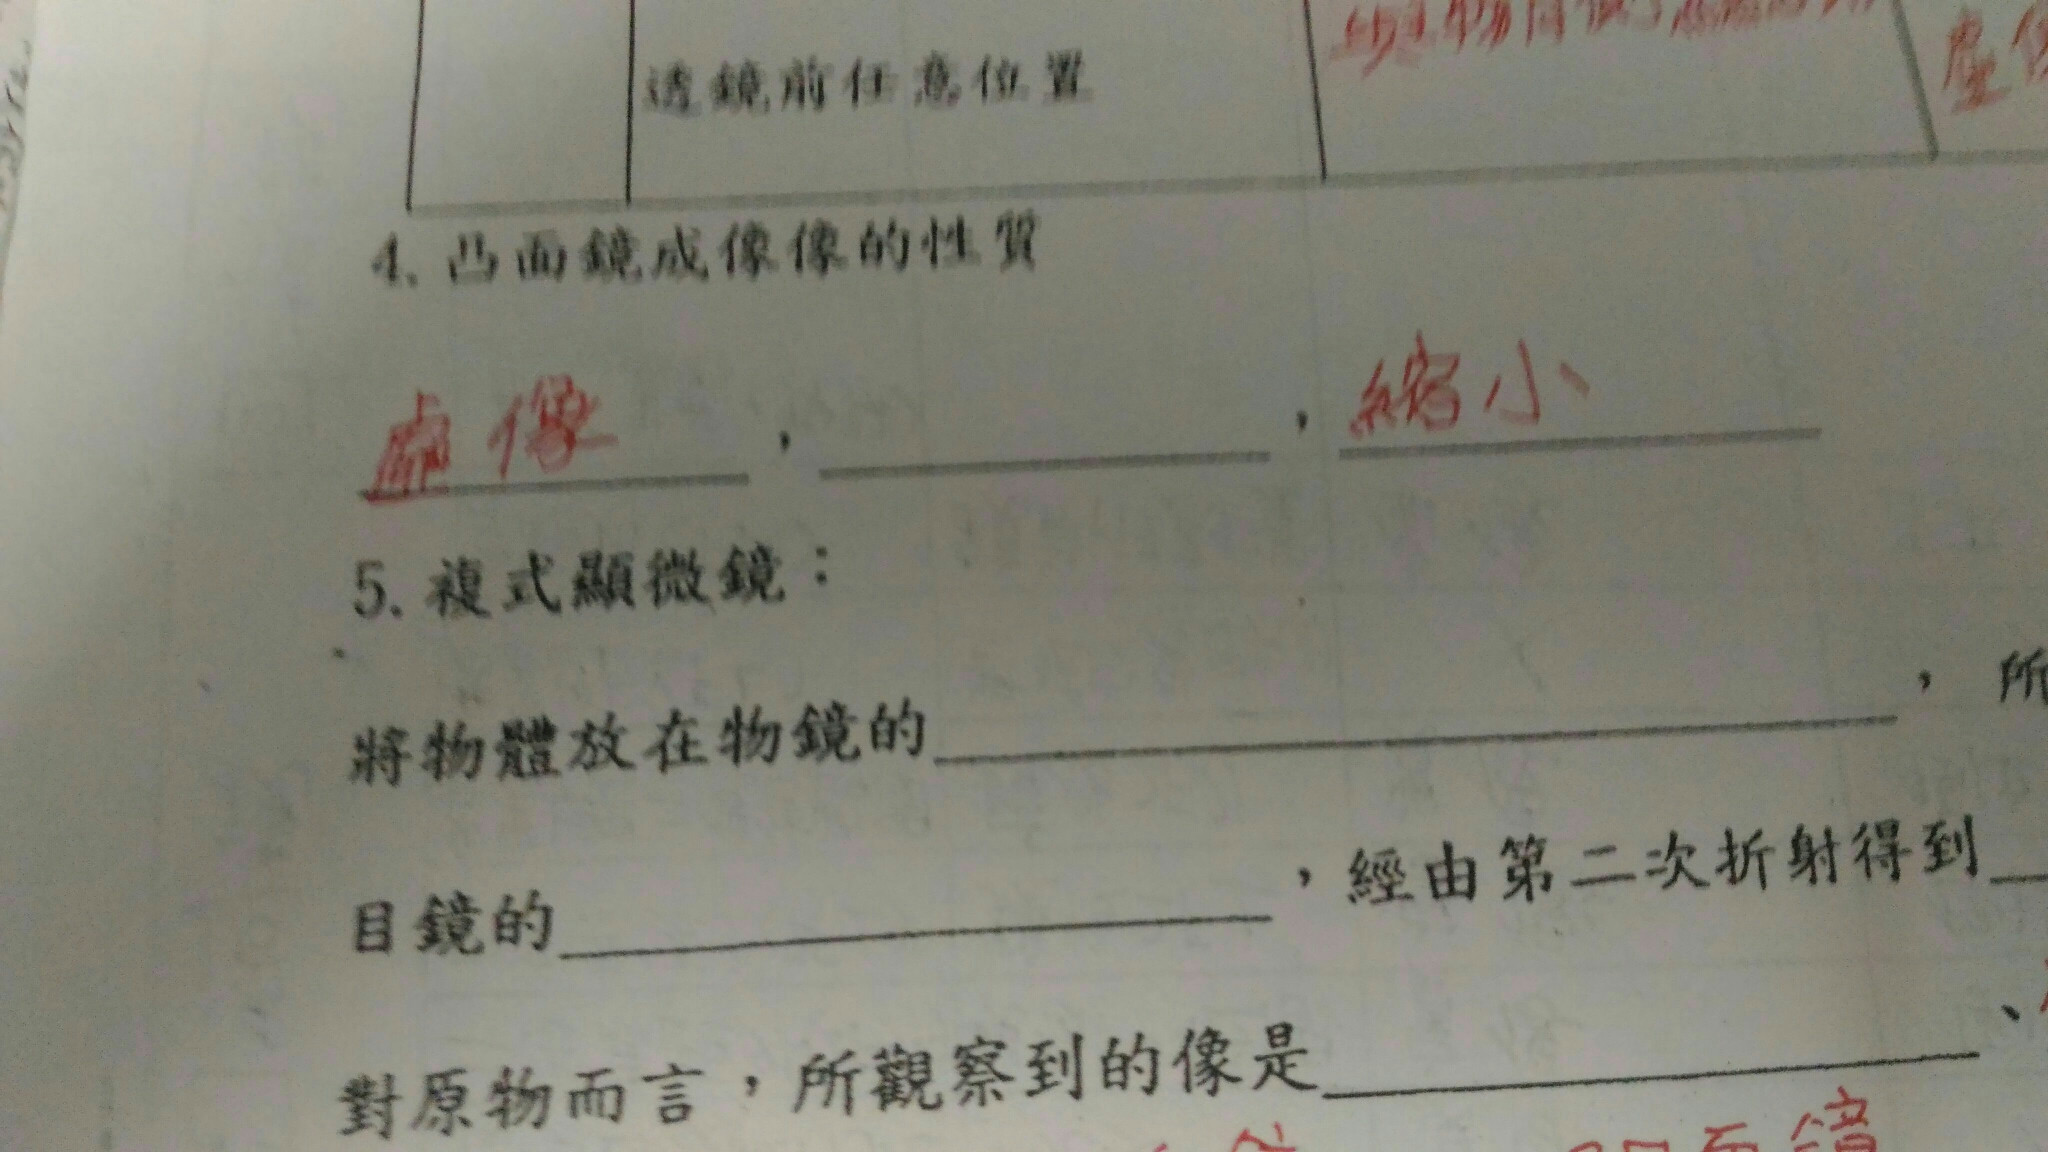 透鏡前任意位置
虛像
4. 凸面鏡成像像的性質
虛像 , , 縮小
5. 複式顯微鏡：
將物體放在物鏡的 , 所
目鏡的 ，經由第二次折射得到
對原物而言，所觀察到的像是 、
面鏡